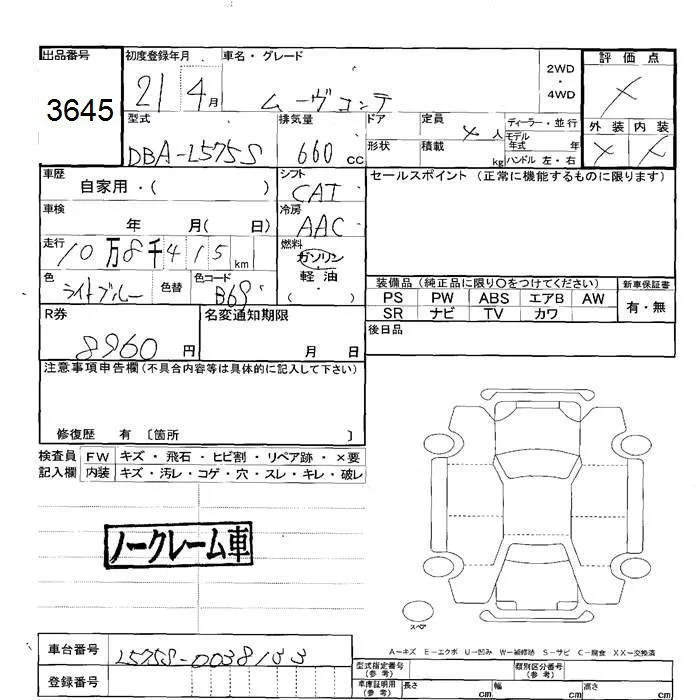 出品番号
3645
初度登録年月
21 4月
車名・グレード
ムーヴコンテ
2WD
・
4WD
評価点
×
外装 内装
× ×
型式
DBA-L575S
排気量
660 cc
ドア
形状
定員
人
積載
kg
ディーラー・並行
モデル年式 年
ハンドル 左・右
車歴
自家用・( )
シフト
CAT
セールスポイント (正常に機能するものに限ります)
車検
年 月( 日)
冷房
AAC
走行
10万8千415km
燃料
ガソリン
軽油
( )
色
ライトブルー
色替
色コード
装備品 (純正品に限り○をつけてください)
PS PW ABS エアB AW
SR ナビ TV カワ
新車保証書
有・無
R券
8960円
名変通知期限
月 日
後日品
注意事項申告欄(不具合内容等は具体的に記入して下さい)
修復歴 有 〔箇所 〕
検査員 FW キズ・飛石・ヒビ割・リペア跡・×要
記入欄 内装 キズ・汚レ・コゲ・穴・スレ・キレ・破レ
ノークレーム車
スペア
A〜キズ E〜エクボ U〜凹み W〜補修跡 S〜サビ C〜腐食 XX〜交換済
車台番号
L575S-0038133
登録番号
型式指定番号
(参考)
類別区分番号
(参考)
車庫証明用
(参考)
長さ cm
幅 cm
高さ cm